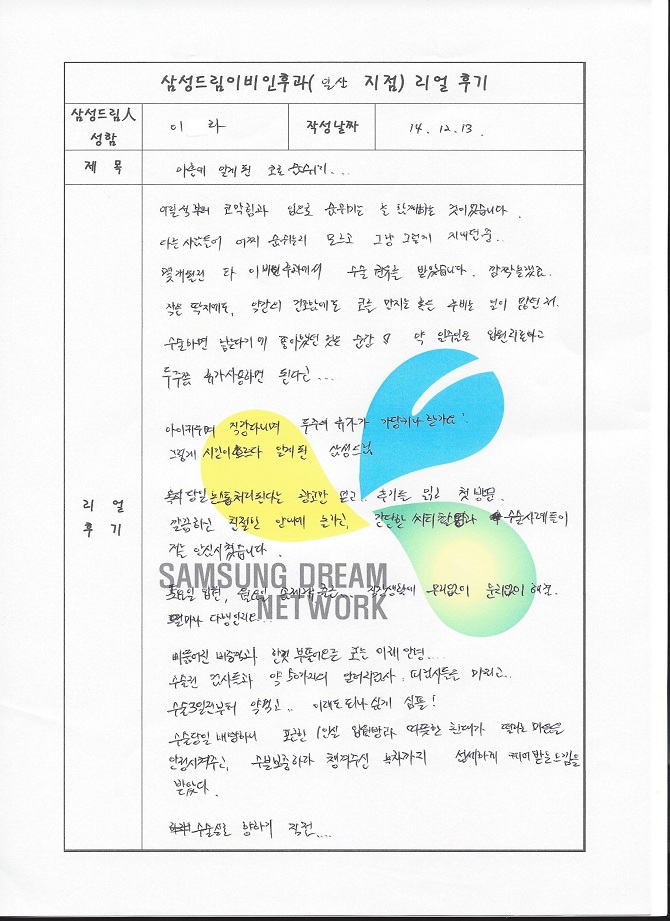 삼성드림이비인후과( 일산 지점) 리얼 후기
삼성드림人 성함
이 라
작성날짜
14. 12. 13.
제 목
마흔에 알게된 코로 숨쉬기...
리 얼 후 기
어릴적부터 코막힘과 입으로 숨쉬기는 늘 함께하는 것이었습니다.
다른사람들이 어찌 숨쉬는지 모르고 그냥 그렇게 지내던중..
몇개월전 타 이비인후과에서 수술 권유를 받았습니다. 깜짝놀랐죠.
작은 딱지에도, 약간의 건조함에도 코를 만지는 혹은 후비는 일이 많던 저.
수술하면 낫는다기에 좋아했던 것은 순간 약 일주일은 입원치료하고
두주쯤 휴가사용하면 된다고...
아이키우며 직장다니며 두주의 휴가가 가당키나 한가요?
그렇게 시간이 흐르다 알게된 삼성드림
당일 원스톱처리된다는 광고만 믿고.. 후기를 읽고 첫 방문.
깔끔하고 친절한 안내에 놀라고, 간단한 씨티촬영과 수술사례들이
저를 안심시켰습니다.
SAMSUNG DREAM
NETWORK
토요일 입원, 월요일 출근... 직장생활에 무리없이 해결.
얼마나 다행인지...
삐뚤어진 비중격과 한껏 부풀어오른 코는 이제 안녕....
수술전 검사들과 약 50가지의 알러지검사, 피검사등을 마치고..
수술3일전부터 약먹고.. 이래도되나 싶게 심플!
수술당일 내원하니 포근한 1인실 입원방과 따뜻한 친대가 떨리는 마음을
안정시켜주고, 수분보충하라 챙겨주신 녹차까지 섬세하게 케어받는느낌을
받았다.
수술실로 향하기 직전....